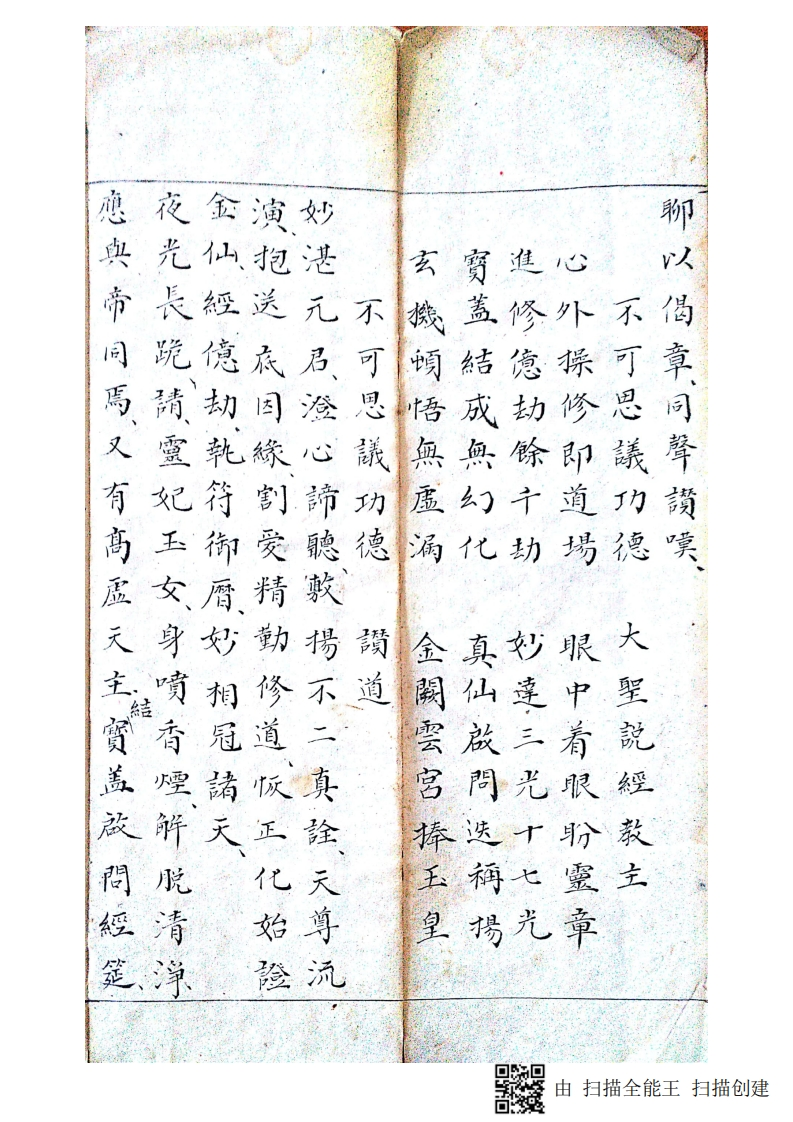 聊以偈章、同聲讃嘆、
不可思議功德 大聖説經教主
心外操修即道場 眼中着眼盼靈章
進修億劫餘千劫 妙達三光十七光
寶蓋結成無幻化 真仙啟問迭稱揚
玄機頓悟無虛漏 金闕雲宮捧玉皇
不可思議功德 讃道
妙湛元君、澄心諦聽、敷揚不二真詮、天尊流
演、抱送底因緣、割愛精勤修道、恢正化始證
金仙、經億劫、執符御曆、妙相冠諸天、
夜光長跪、請、靈妃玉女、身噴香煙、解脱清淨、
應與帝同焉、又有髙虛天主、結寶蓋啟問經筵、
由 扫描全能王 扫描创建